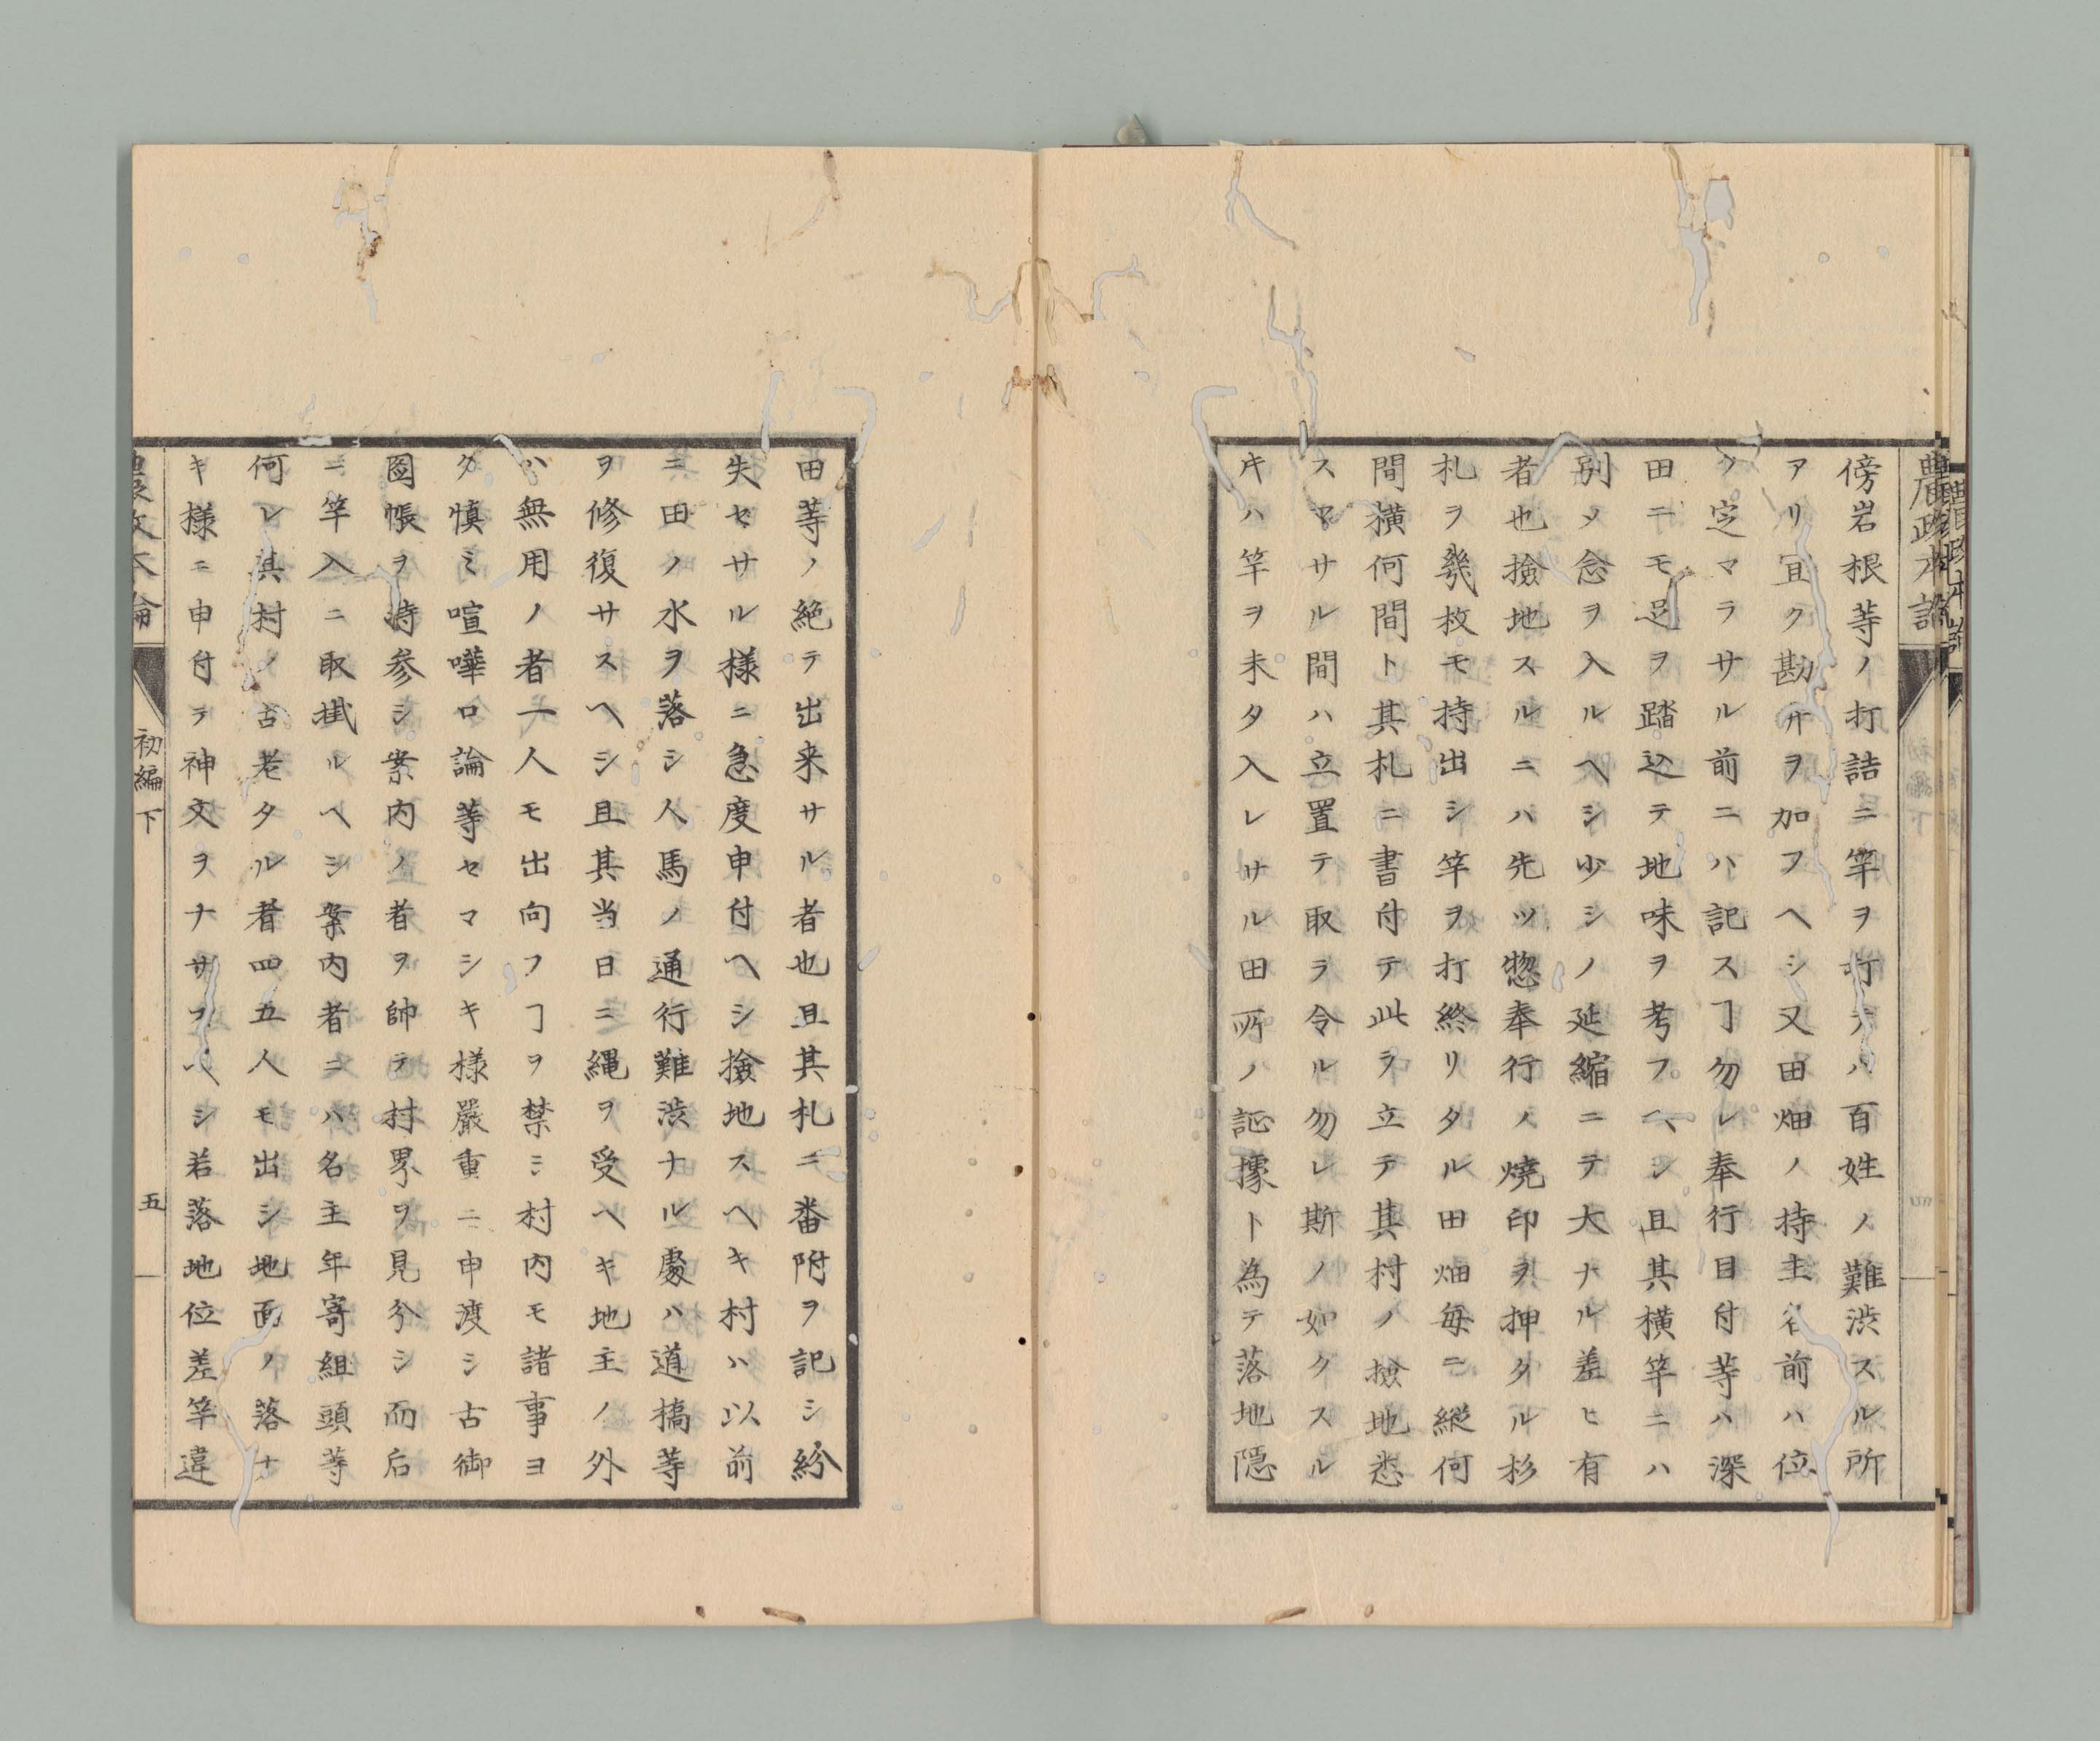 農政本論
傍岩根等ノ打詰ニ竿ヲ打テハ百姓ノ難渋スル所
アリ宜ク勘弁ヲ加フヘシ又田畑ノ持主名前ハ位
ノ定マラサル前ニハ記スヿ勿レ奉行目付等ハ深
田ニモ足ヲ踏込テ地味ヲ考フヘシ且其横竿ニハ
別メ念ヲ入ルヘシ少シノ延縮ニテ大ナル差ヒ有
者也撿地スルニハ先ツ惣奉行ノ焼印ヲ押タル杉
札ヲ幾枚モ持出シ竿ヲ打終リタル田畑毎ニ縦何
間横何間ト其札ニ書付テ此ヲ立テ其村ノ撿地悉
スマサル間ハ立置テ取ラ令ル勿レ斯ノ如クスル
片ハ竿ヲ未タ入レサル田所ノ証㨿ト為テ落地隠
田等ノ絶テ出来サル者也且其札ニ番附ヲ記シ紛
失セサル様ニ急度申付ヘシ撿地スヘキ村ハ以前
ニ田ノ水ヲ落シ人馬ノ通行難渋ナル處ハ道橋等
ヲ修復サスヘシ且其当日ニ縄ヲ受ヘキ地主ノ外
ハ無用ノ者一人モ出向フヿヲ禁ミ村内モ諸事ヨ
ク慎ミ喧嘩口論等セマシキ様嚴重ニ申渡シ古御
圖帳ヲ持参シ案内ノ者ヲ帥テ村界ヲ見分シ而后
ニ竿入ニ取掛ルヘシ案内者ニハ名主年寄組頭等
何レ其村ノ古老タル者四五人モ出シ地面ノ落ナ
キ様ニ申付テ神文ヲナサスヘシ若落地位差竿違
農政本論
初編下
五